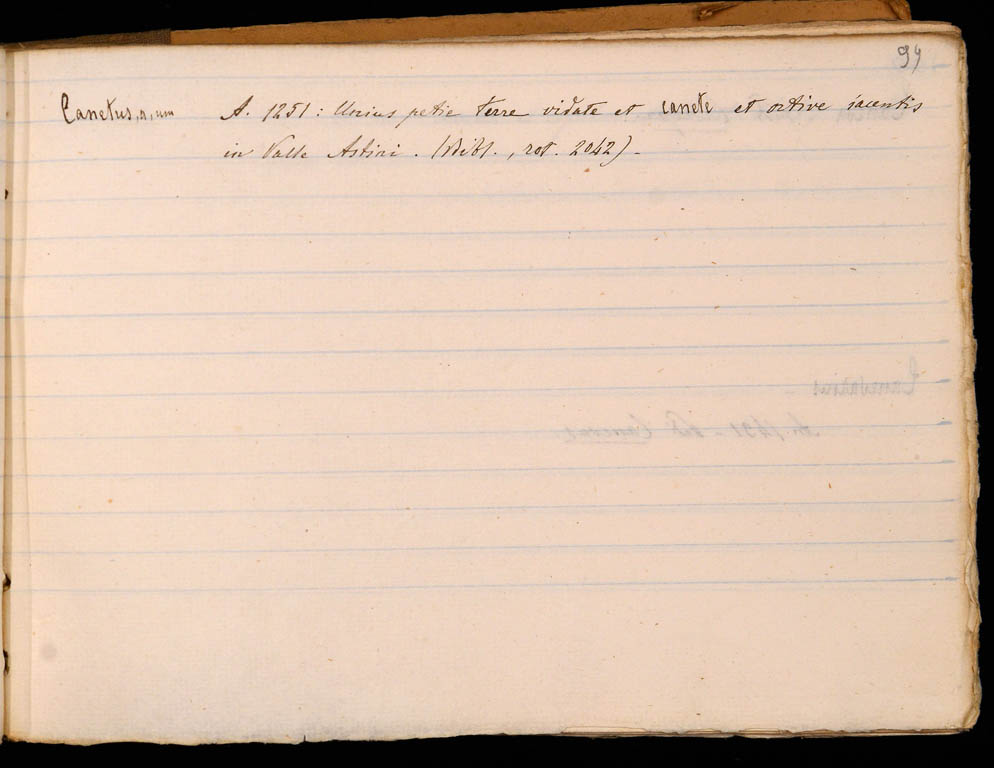 94
Canetus, a, um A. 1251: Unius petie terre vidate et canete et ortive iacentis
in Valle Astini. (Bibl., rot. 2042).